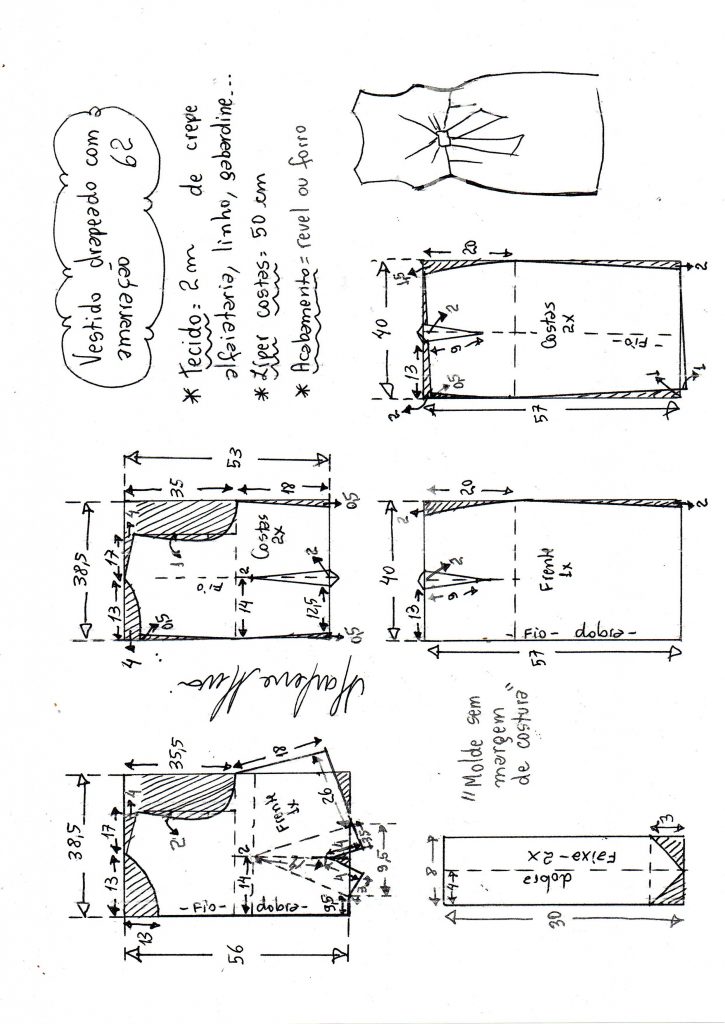 Vestido drapeado com a
amarração 62
* Tecido = 2 m de crepe
alfaiataria, linho, gabardine...
* Zíper costas = 50 cm
* Acabamento = revel ou forro
38,5
13
17
4
13
35,5
18
56
2
Frente
1x
14
2
- Fio - dobra -
26
3,5
4
4
3
9,5
9,5
38,5
13
17
4
4
0,5
1
35
18
53
Fio
Costas
2x
14
2
12,5
2
0,5
0,5
Marlene Mukai
"Molde sem
margem
de costura"
8
4
30
dobra
Faixa - 2x
3
40
13
2
20
9
2
Frente
1x
- Fio - dobra -
57
2
40
13
1,5
20
2
0,5
9
2
Costas
2x
Fio
57
1
1
2